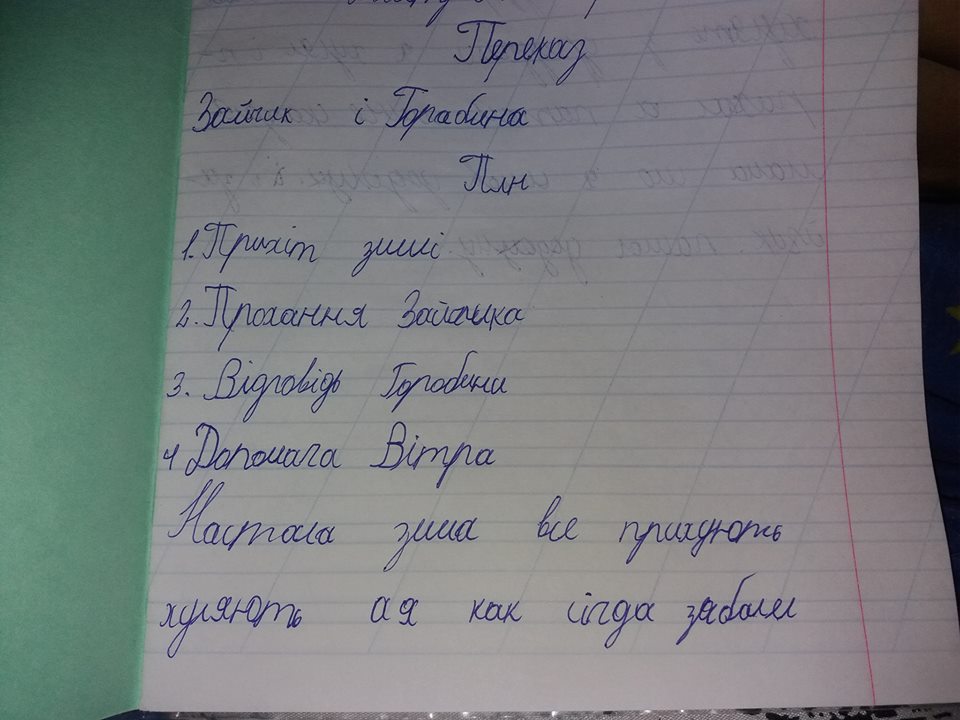 Переказ
Зайчик і Горабина
Плн
1. Прихіт зимі
2. Прохання Зайчика
3. Відповідь Горобини
4 Допомага Вітра
Настала зима все
гуляють ая как сігда